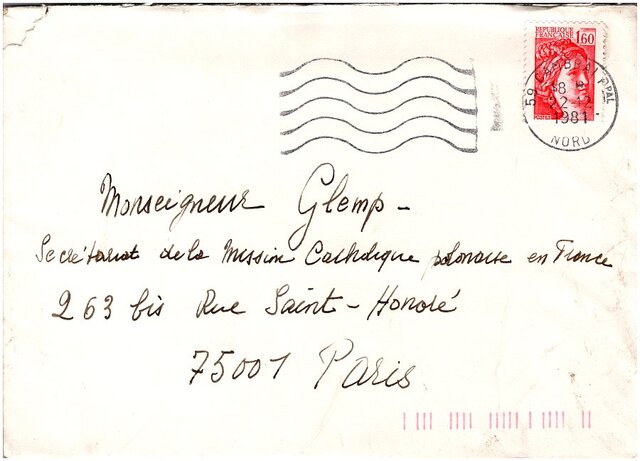 REPUBLIQUE
FRANCAISE 1,60
59 CAMBRAI PPAL
18 H
2-12
1981
NORD
Monseigneur Glemp -
Secrétariat de la Mission Catholique polonaise en France
263 bis Rue Saint-Honoré
75001 Paris